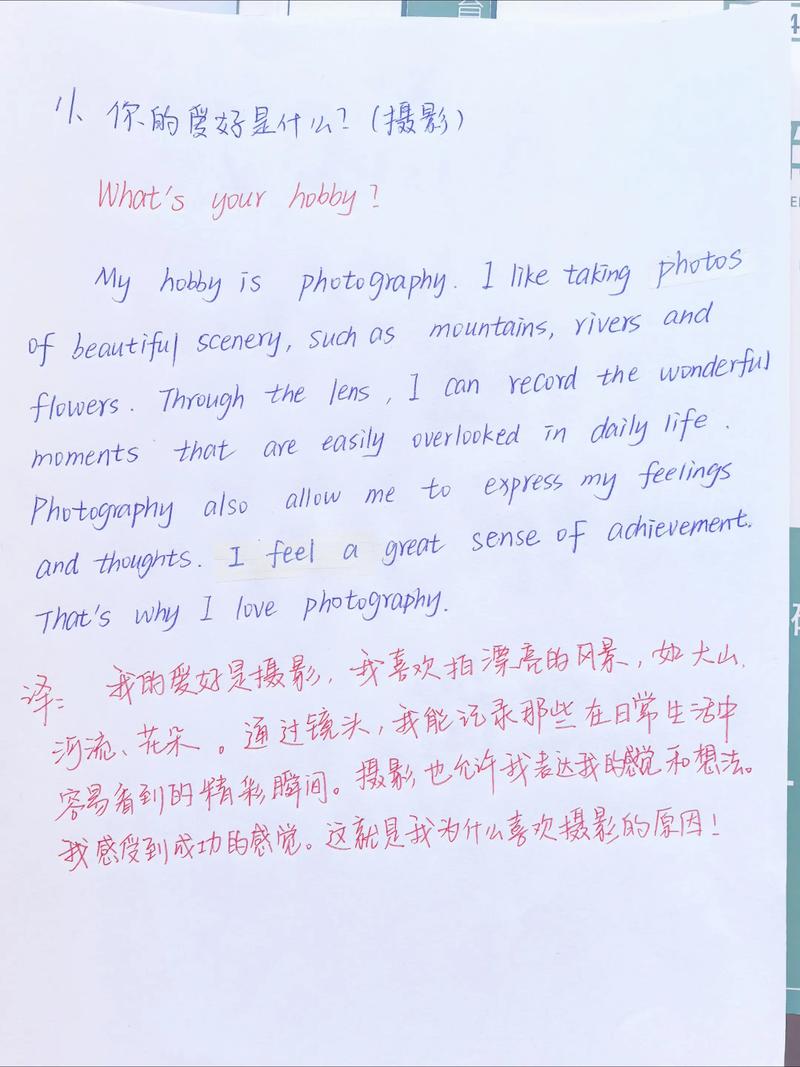 你的爱好是什么?(摄影)
What's your hobby?
My hobby is photography. I like taking photos
of beautiful scenery, such as mountains, rivers and
flowers. Through the lens, I can record the wonderful
moments that are easily overlooked in daily life.
Photography also allow me to express my feelings
and thoughts. I feel a great sense of achievement.
That's why I love photography.
译: 我的爱好是摄影, 我喜欢拍漂亮的风景, 如大山,
河流、花朵。通过镜头, 我能记录那些在日常生活中
容易看到的精彩瞬间。摄影也允许我表达我的感觉和想法。
我感受到成功的感觉。这就是我为什么喜欢摄影的原因!